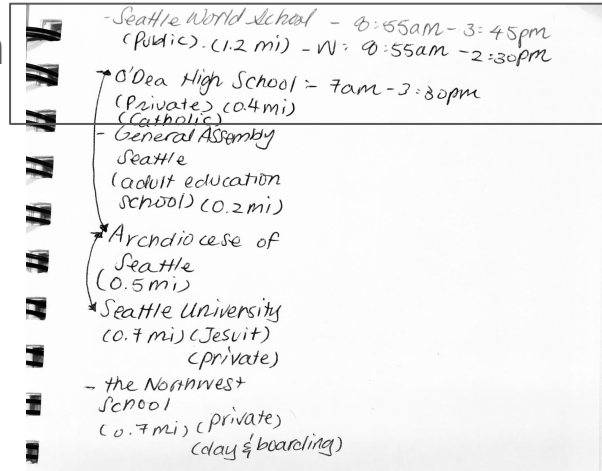 - Seattle World School - 8:55am - 3:45pm
(Public). (1.2 mi) - W: 8:55am - 2:30pm
O'Dea High School :- 7am - 3:30pm
(Private) (0.4mi)
(Catholic)
- General Assembly
Seattle
(adult education
school) (0.2mi)
- Archdiocese of
Seattle
(0.5mi)
Seattle University
(0.7mi) (Jesuit)
(private)
- the Northwest
School
(0.7mi) (private)
(day & boarding)